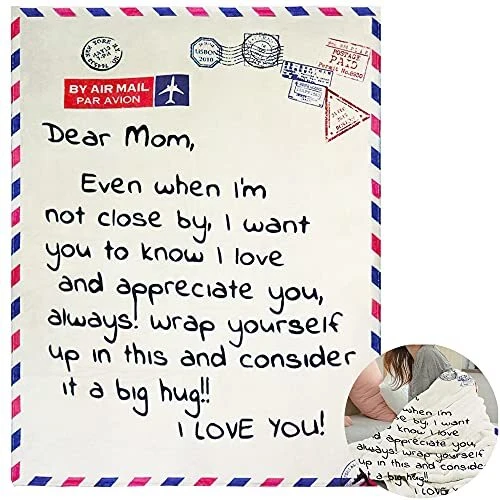 LISBON
2010
POSTAGE
PAID
Permit No.
BY AIR MAIL
PAR AVION
Dear Mom,
Even when i'm
not close by, I want
you to know I love
and appreciate you,
always! wrap yourself
up in this and consider
it a big hug!!
I LOVE YOU!
when i'm
close by, I want
know I love
appreciate you,
wrap yourself
up in this and consider
it a big hug!!
I LOVE